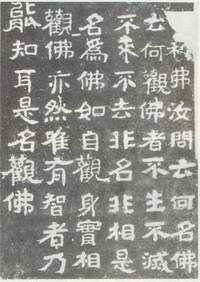 利弗汝問云何名佛
云何觀佛者不生不滅
不來不去非名非相是
名爲佛如自觀身實相
觀佛亦然唯有智者乃
能知耳是名觀佛